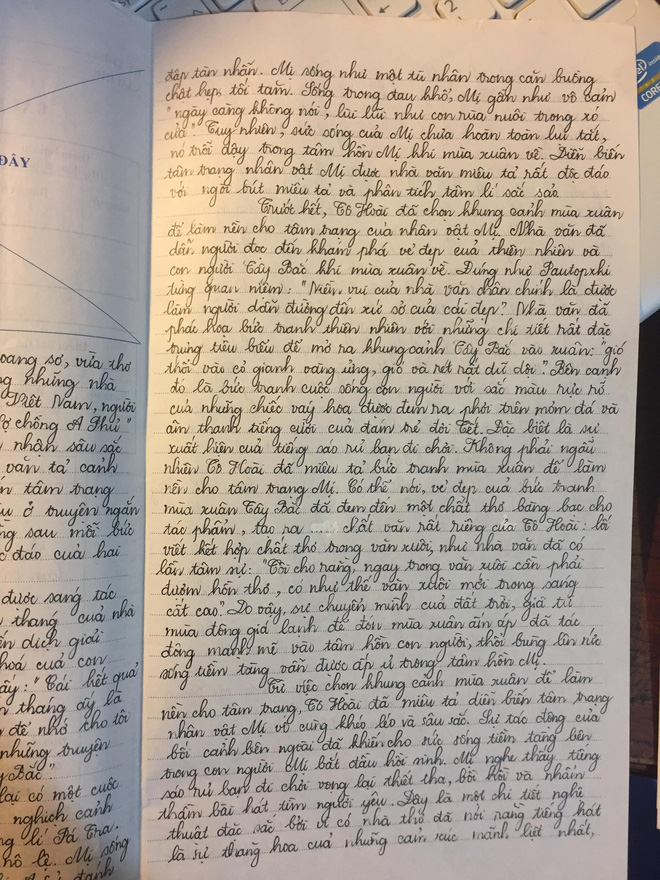 ĐÂY
oang sơ, vừa thơ
ng những nhà
Việt Nam, người
ợ chồng A Phủ"
nhân sâu sắc
văn tả cảnh
n tâm trạng
u ở truyện ngắn
ng sau mỗi bức
c đáo của hai
được sáng tác
thang của nhà
ến dịch giải
hoá của con
ấy: "Cái kết quả
n tháng ấy là
để nhớ cho tôi
những truyện
y Bắc".
lại có một cuộc
nghịch cảnh
ng lí Pá Tra.
nô lệ. Mị sống
đập tàn nhẫn. Mị sống như một tù nhân trong căn buồng
chật hẹp, tối tăm. Sống trong đau khổ, Mị gần như vô cảm
"ngày càng không nói, lùi lũi như con rùa nuôi trong xó
cửa". Tuy nhiên, sức sống của Mị chưa hoàn toàn lụi tắt,
nó trỗi dậy trong tâm hồn Mị khi mùa xuân về. Diễn biến
tâm trạng nhân vật Mị được nhà văn miêu tả rất độc đáo
với ngòi bút miêu tả và phân tích tâm lí sắc sảo.
Trước hết, Tô Hoài đã chọn khung cảnh mùa xuân
để làm nền cho tâm trạng của nhân vật Mị. Nhà văn đã
dẫn người đọc đến khám phá vẻ đẹp của thiên nhiên và
con người Tây Bắc khi mùa xuân về. Đúng như Pautopxki
từng quan niệm: "Niềm vui của nhà văn chân chính là được
làm người dẫn đường đến xứ sở của cái đẹp". Nhà văn đã
phác họa bức tranh thiên nhiên với những chi tiết rất đặc
trưng tiêu biểu để mở ra khung cảnh Tây Bắc vào xuân: "gió
thổi vào cỏ gianh vàng ửng, gió và rét rất dữ dội". Bên cạnh
đó là bức tranh cuộc sống con người với sắc màu rực rỡ
của những chiếc váy hoa được đem ra phơi trên mỏm đá và
âm thanh tiếng cười của đám trẻ đợi Tết. Đặc biệt là sự
xuất hiện của tiếng sáo rủ bạn đi chơi. Không phải ngẫu
nhiên Tô Hoài đã miêu tả bức tranh mùa xuân để làm
nền cho tâm trạng Mị. Có thể nói, vẻ đẹp của bức tranh
mùa xuân Tây Bắc đã đem đến một chất thơ bàng bạc cho
tác phẩm, tạo ra chất văn rất riêng của Tô Hoài: lối
viết kết hợp chất thơ trong văn xuôi, như nhà văn đã có
lần tâm sự: "Tôi cho rằng, ngay trong văn xuôi cần phải
đượm hồn thơ, có như thế văn xuôi mới trong sáng
cất cao". Do vậy, sự chuyển mình của đất trời, giã từ
mùa đông giá lạnh để đón mùa xuân ấm áp đã tác
động mạnh mẽ vào tâm hồn con người, thổi bùng lên sức
sống tiềm tàng vẫn được ấp ủ trong tâm hồn Mị.
Từ việc chọn khung cảnh mùa xuân để làm
nền cho tâm trạng, Tô Hoài đã miêu tả diễn biến tâm trạng
nhân vật Mị vô cùng khéo léo và sâu sắc. Sự tác động của
bối cảnh bên ngoài đã khiến cho sức sống tiềm tàng bên
trong con người Mị bắt đầu hồi sinh. Mị nghe thấy tiếng
sáo rủ bạn đi chơi vọng lại thiết tha, bồi hồi và nhẩm
thầm bài hát tìm người yêu. Đây là một chi tiết nghệ
thuật đặc sắc bởi vì có nhà thơ đã nói rằng tiếng hát
là sự thăng hoa của những cảm xúc mãnh liệt nhất,